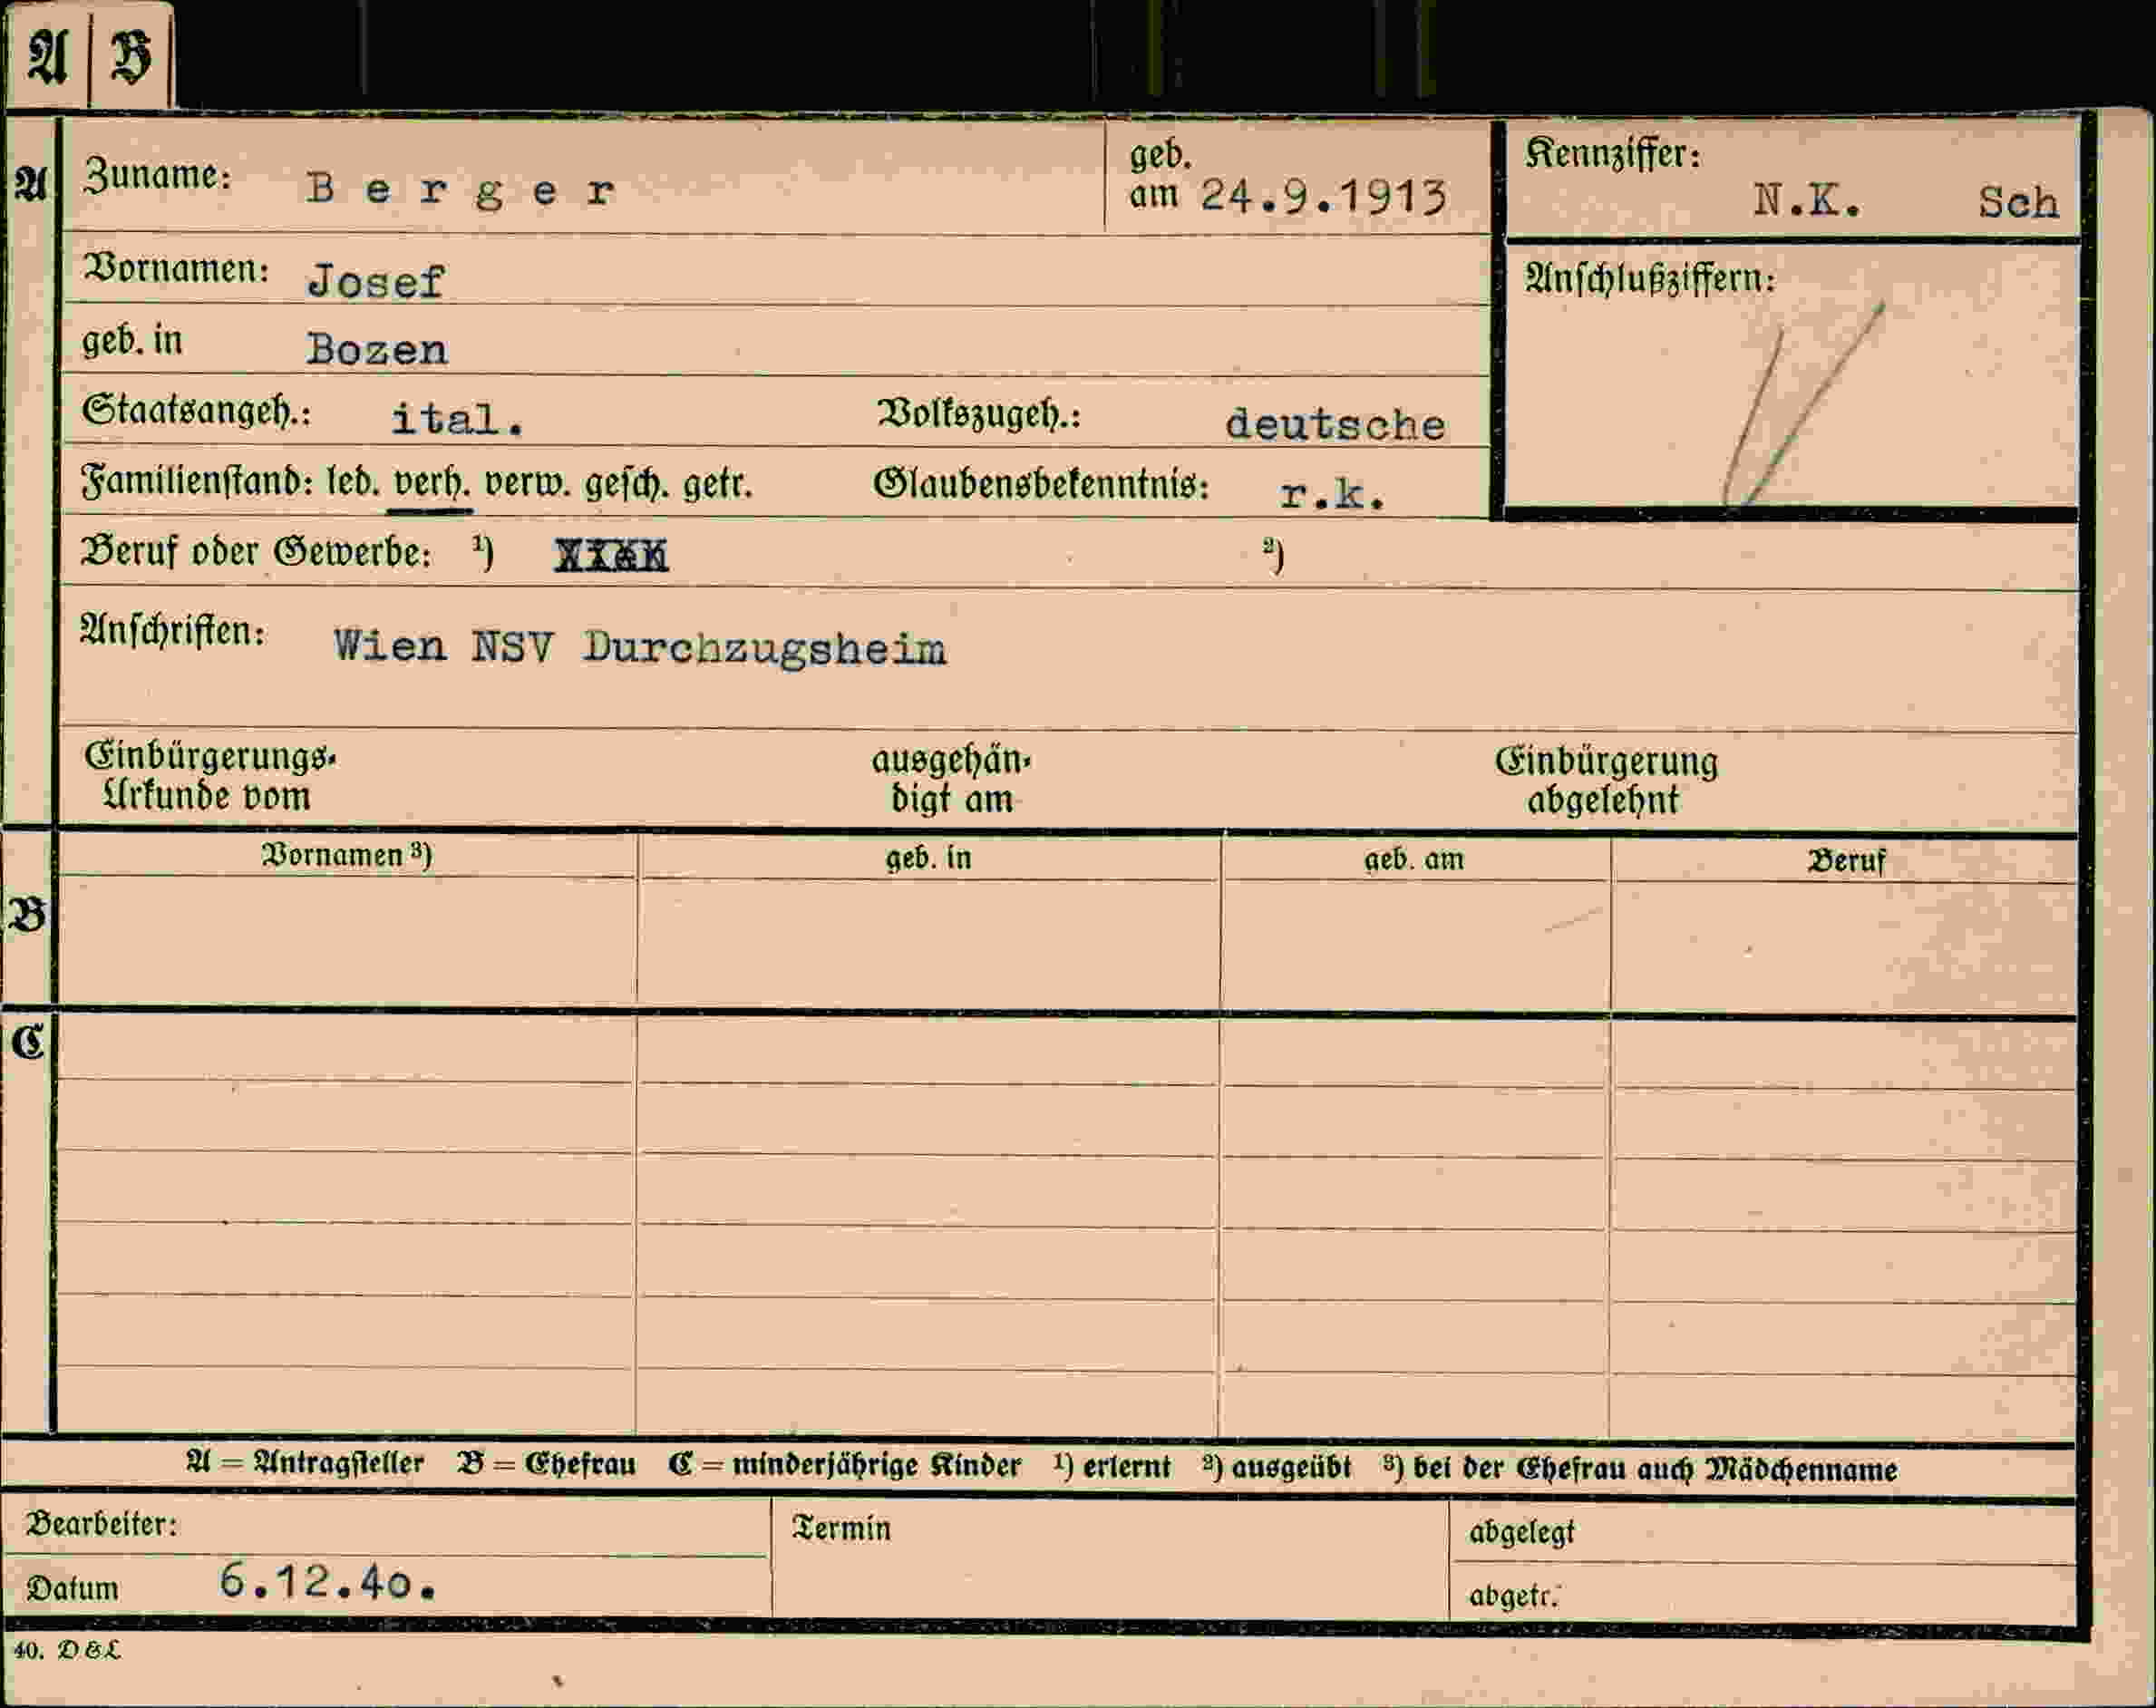 A B
A Zuname: Berger geb. am 24.9.1913 Kennziffer: N.K. Sch
Vornamen: Josef Anschlußziffern:
geb. in Bozen
Staatsangeh.: ital. Volkszugeh.: deutsche
Familienstand: led. verh. verw. gesch. getr. Glaubensbekenntnis: r.k.
Beruf oder Gewerbe: ¹) ²)
Anschriften: Wien NSV Durchzugsheim
Einbürgerungs- ausgehän- Einbürgerung
Urkunde vom digt am abgelehnt
Vornamen ³) geb. in geb. am Beruf
B
C
A = Antragsteller B = Ehefrau C = minderjährige Kinder ¹) erlernt ²) ausgeübt ³) bei der Ehefrau auch Mädchenname
Bearbeiter: Termin abgelegt
Datum 6.12.40. abgetr.
40. D&L